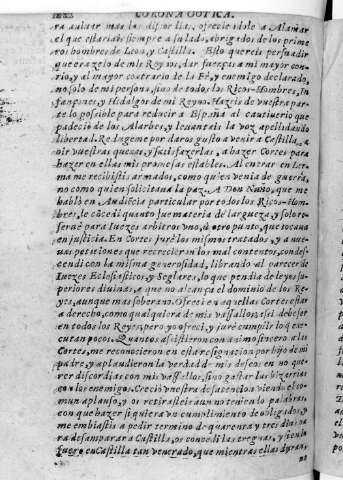 CORONA GOTICA.
el que estariais siempre a su lado, abrigados de los prime
ros hombres de Leon, y Castilla. Esto quereis persuadir
que era zelo de mis Reynos, dar fuerças a mi mayor con-
rio, y al mayor contrario de la Fè, y enemigo declarado,
no solo de mi persona, sino de todos los Ricos-Hombres, In-
fançones, y Hidalgos de mi Reyno. Hazeis de vuestra par-
te lo possible para reducir a España al cautiuerio que
padeciò de los Alarbes, y leuantais la voz apellidando
libertad. Reduxeme por daros gusto a venir a Castilla, a
oir vuestras quexas, y satisfazerlas, y a hazer Cortes para
hazer en ellas mis promesas estables. Al entrar en Ler-
ma me recibistis armados, como quien venia de guerra,
no como quien solicitaua la paz. A Don Nuño, que me
hablò en Audiēcia particular por todos los Ricos-Hom-
bres, le cōcedi quanto fue materia de largueza, y solo re-
seruè para Iuezes arbitros vno, ù otro punto, que tocaua
en justicia. En Cortes jurè los mismos tratados, y a nue-
uas peticiones que recrecieron los mal contentos, conde-
cendi con la misma generosidad, librando al parecer de
Iuezes Eclesiasticos, y Seglares, lo que pendia de leyes su-
periores diuinas, a que no alcança el dominio de los Re-
yes, aunque mas soberano. Ofreci en aquellas Cortes estar
a derecho, como qualquiera de mis vassallos, assi deben ser
en todos los Reyes, pero yo ofreci, y jarè cumplir lo q̃ exe-
cutan pocos. Quantos assistieron con animo sincero a las
Cortes, me reconocieron en esta resignacion por hijo de mi
padre, y aplaudieron la verdad de mis deseos en no que-
rer discordias con mis vassallos, sino gastar las bizarrias
con los enemigo. Creciò vuestra desatencion viendo el co-
mun aplauso, y os retirasteis aun no teniendo palabras,
con que hazer si quiera vn cumplimiento de obligados, y
me embiastis a pedir termino de quarenta y tres dias pa-
ra desamparar a Castilla, os concedi las treguas, y
fuego en Castilla tan venerado, que mientras ellas duran,